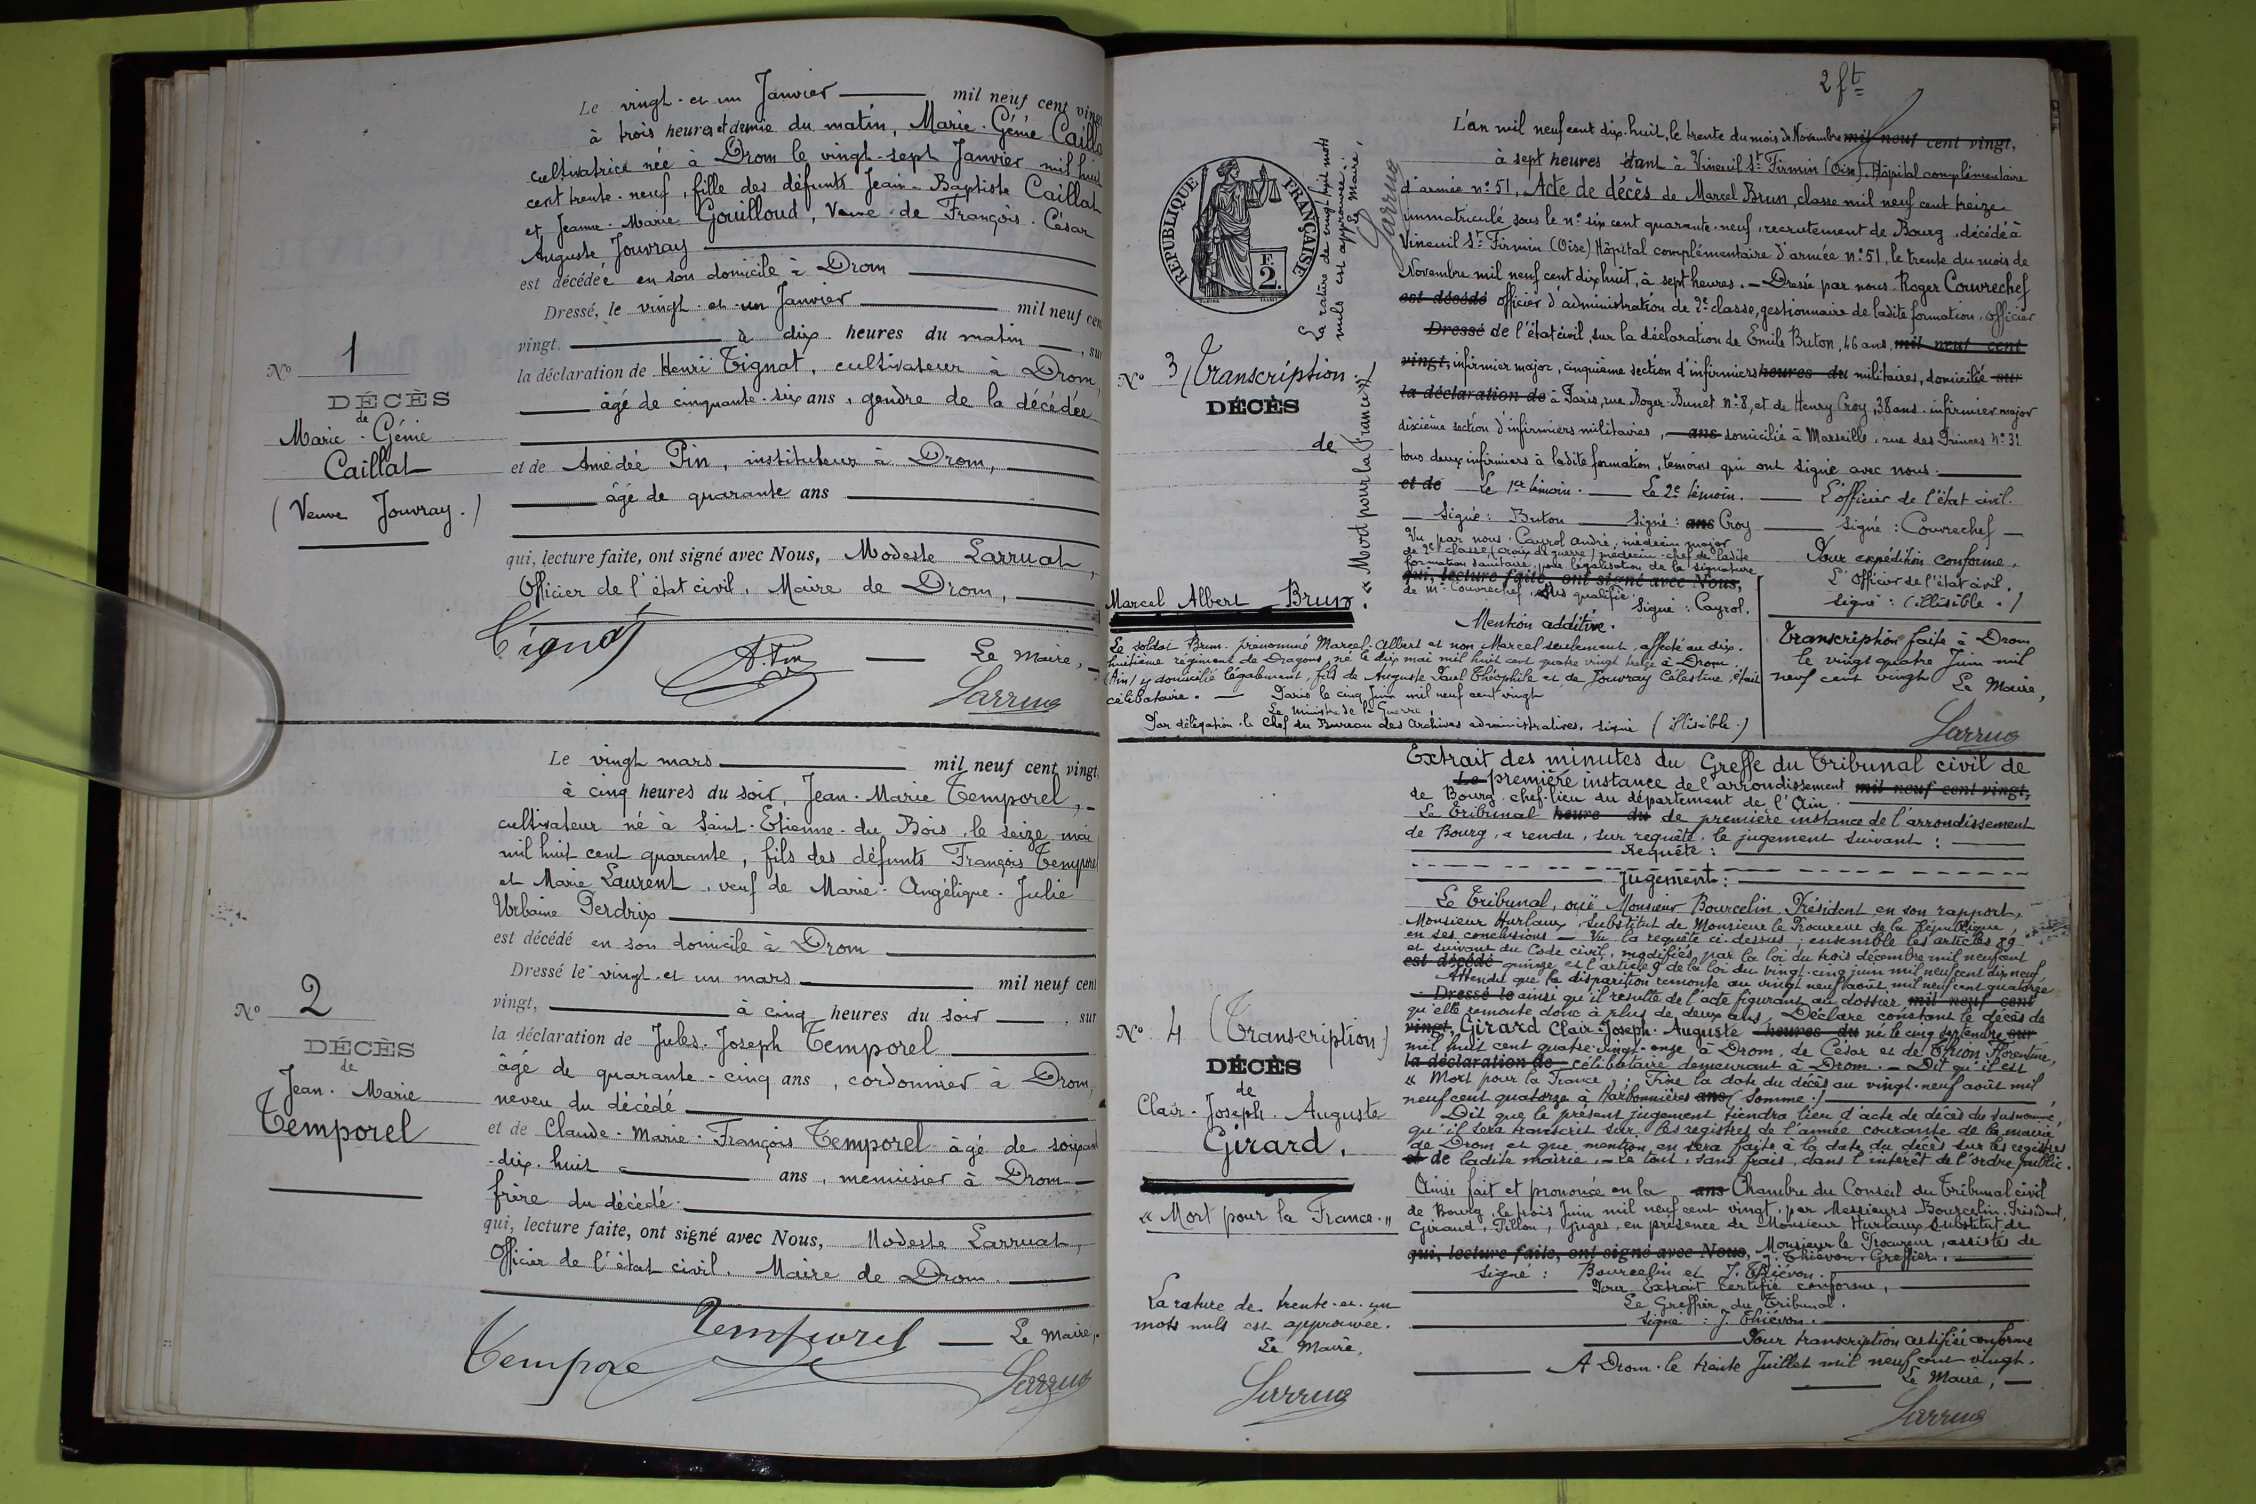 Le vingt-et-un Janvier mil neuf cent vingt
à trois heures et demie du matin, Marie-Génie Caillat
cultivatrice née à Drom le vingt-sept Janvier mil huit
cent trente-neuf, fille des défunts Jean-Baptiste Caillat
et Jeanne-Marie Gouilloud, veuve de François-César
Auguste Jouvray
est décédée en son domicile à Drom
Dressé, le vingt-et-un Janvier mil neuf cent
vingt, à dix heures du matin, sur
la déclaration de Henri Tignat, cultivateur à Drom,
âgé de cinquante-six ans, gendre de la décédée
et de Amédée Pin, instituteur à Drom,
âgé de quarante ans
qui, lecture faite, ont signé avec Nous, Modeste Larruat,
Officier de l'état civil, Maire de Drom,
Le Maire,
Tignat
A. Pin
N° 1
DÉCÈS
de
Marie-Génie
Caillat
(Veuve Jouvray.)
Le vingt mars mil neuf cent vingt,
à cinq heures du soir, Jean-Marie Temporel,
cultivateur né à Saint-Etienne-du-Bois, le seize mai
mil huit cent quarante, fils des défunts François Temporel
et Marie Laurent, veuf de Marie-Angélique-Julie
Urbaine Perdrix
est décédé en son domicile à Drom
Dressé le vingt-et-un mars mil neuf cent
vingt, à cinq heures du soir, sur
la déclaration de Jules-Joseph Temporel
âgé de quarante-cinq ans, cordonnier à Drom,
neveu du décédé
et de Claude-Marie-François Temporel âgé de soixante
-dix-huit ans, menuisier à Drom
frère du décédé.
qui, lecture faite, ont signé avec Nous, Modeste Larruat,
Officier de l'état civil, Maire de Drom.
Temporel
Le Maire,
N° 2
DÉCÈS
de
Jean-Marie
Temporel
2 ft
RÉPUBLIQUE FRANÇAISE
F.
2.
La rature de vingt huit mots
nuls est approuvée.
Le Maire,
N° 3 (Transcription)
DÉCÈS
de
Marcel Albert Brun.
« Mort pour la France »
L'an mil neuf cent dix-huit, le trente du mois de Novembre mil neuf cent vingt,
à sept heures étant à Vineuil St-Firmin (Oise), Hôpital complémentaire
d'armée n° 51, Acte de décès de Marcel Brun, classe mil neuf cent treize
immatriculé sous le n° six cent quarante-neuf, recrutement de Bourg, décédé à
Vineuil St-Firmin (Oise) Hôpital complémentaire d'armée n° 51, le trente du mois de
Novembre mil neuf cent dix huit, à sept heures. Dressé par nous Roger Couvrechef
est décédé officier d'administration de 2e classe, gestionnaire de ladite formation, officier
Dressé de l'état civil, sur la déclaration de Emile Buton, 46 ans, mil neuf cent
vingt, infirmier major, cinquième section d'infirmiers heures du militaires, domicilié sur
la déclaration de à Paris, rue Roger-Bunet n° 8, et de Henry Croy, 38 ans, infirmier major
dixième section d'infirmiers militaires, ans domicilié à Marseille, rue des Princes N° 31
tous deux infirmiers à ladite formation, témoins qui ont signé avec nous.
et de Le 1er témoin. Le 2e témoin. L'officier de l'état civil.
Signé : Buton Signé : ans Croy Signé : Couvrechef
Vu par nous Cayrol André, médecin major
de 2e classe, (croix de guerre) médecin-chef de ladite
formation sanitaire, pour légalisation de la signature
qui, lecture faite, ont signé avec Nous,
de Mr Couvrechef plus qualifié.
Signé : Cayrol.
Pour expédition conforme,
L'Officier de l'état civil,
Signé : (illisible.)
Mention additive.
Le soldat Brun prénommé Marcel-Albert et non Marcel seulement, affecté au dix-
huitième régiment de Dragons, né le dix mai mil huit cent quatre vingt treize à Drom
(Ain) y domicilié légalement, fils de Auguste Paul Théophile et de Jouvray Célestine, était
célibataire. Paris le cinq Juin mil neuf cent vingt
Le Ministre de la Guerre
Par délégation le Chef du Bureau des Archives administratives, signé (illisible.)
Transcription faite à Drom
le vingt quatre Juin mil
neuf cent vingt
Le Maire,
N° 4 (Transcription)
DÉCÈS
de
Clair-Joseph-Auguste
Girard.
« Mort pour la France. »
La rature de trente-et-un
mots nuls est approuvée.
Le Maire,
Extrait des minutes du Greffe du Tribunal civil de
Le première instance de l'arrondissement mil neuf cent vingt,
de Bourg, chef-lieu du département de l'Ain.
Le Tribunal heure du de première instance de l'arrondissement
de Bourg, a rendu, sur requête, le jugement suivant :
Requête :
Jugement :
Le Tribunal, ouï Monsieur Bourcelin, Président, en son rapport,
Monsieur Hurlaux, Substitut de Monsieur le Procureur de la République,
en ses conclusions. Vu la requête ci-dessus ; ensemble les articles 89
et suivant du Code civil, modifiés par la loi du trois décembre mil neuf cent
est décédé quinze et l'article 9 de la loi du vingt-cinq juin mil neuf cent dix neuf,
Attendu que la disparition remonte au vingt neuf août mil neuf cent quatorze
Dressé le ainsi qu'il résulte de l'acte figurant au dossier mil neuf cent
qu'elle remonte donc à plus de deux ans, Déclare constant le décès de
vingt, Girard Clair-Joseph-Auguste heures du né le cinq septembre sur
mil huit cent quatre-vingt-onze à Drom, de César et de Florentine,
la déclaration de célibataire demeurant à Drom. Dit qu'il est
« Mort pour la France », Fixe la date du décès au vingt-neuf août mil
neuf cent quatorze à Harbonnières ans (Somme.)
Dit que le présent jugement tiendra lieu d'acte de décès du susnommé,
qu'il sera transcrit sur les registres de l'année courante de la mairie
de Drom et que mention en sera faite à la date du décès sur les registres
et de ladite mairie. Le tout, sans frais, dans l'intérêt de l'ordre public.
Ainsi fait et prononcé en la ans Chambre du Conseil du Tribunal civil
de Bourg, le trois Juin mil neuf cent vingt, par Messieurs Bourcelin, Président,
Giraud, Pillon, Juges, en présence de Monsieur Hurlaux, Substitut de
qui, lecture faite, ont signé avec Nous, Monsieur le Procureur, assistés de
J. Thiévon, Greffier.
Signé : Bourcelin et J. Thiévon.
Pour Extrait Certifié conforme,
Le Greffier du Tribunal.
Signé : J. Thiévon.
Pour transcription certifiée conforme
A Drom le trente Juillet mil neuf cent vingt.
Le Maire,